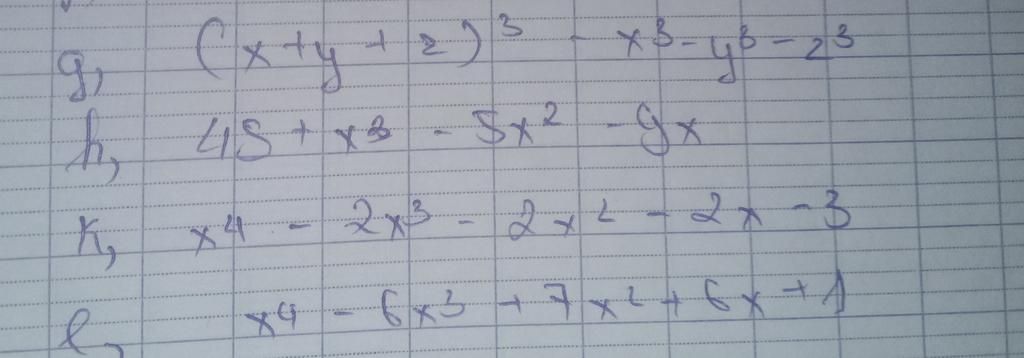 g, (x+y+z)³ - x³ - y³ - z³
h, 45 + x³ - 5x² - 9x
k, x⁴ - 2x³ - 2x² - 2x - 3
l, x⁴ - 6x³ + 7x² + 6x + 1